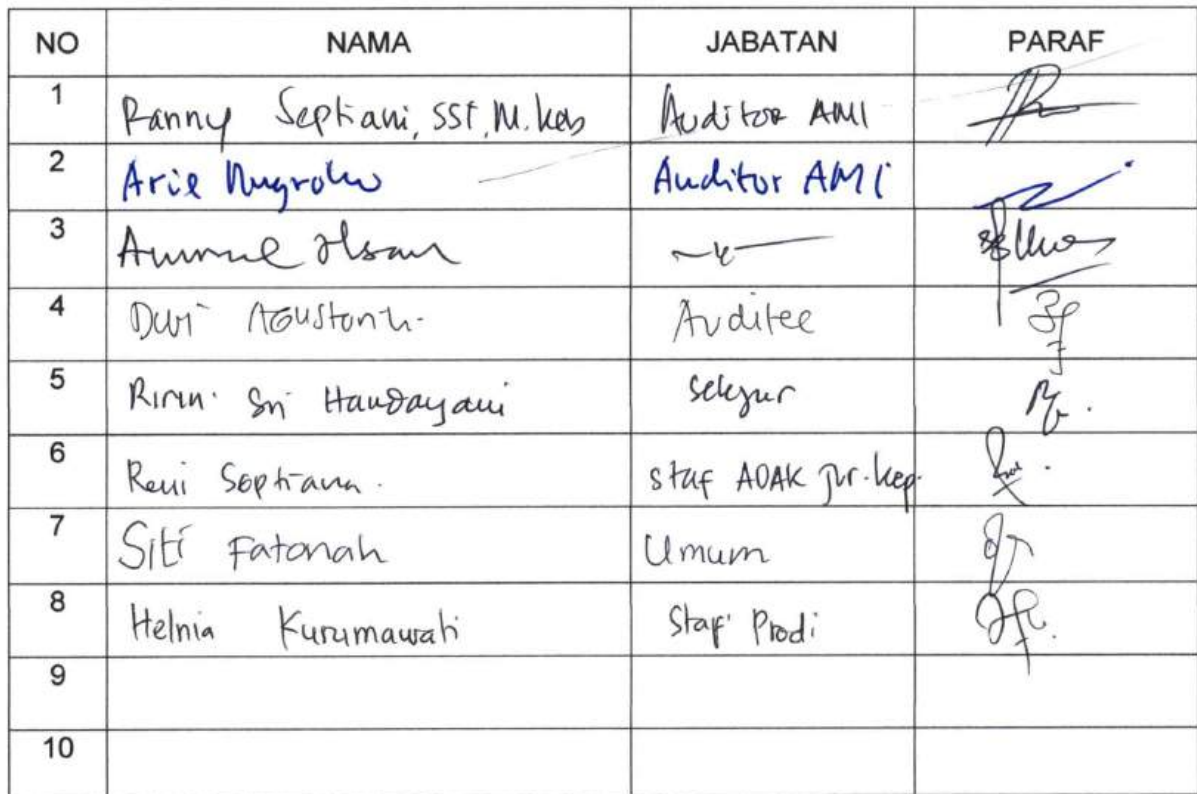 NO NAMA JABATAN PARAF
1 Ranny Septiani, SST, M.Kes Auditor AMI
2 Arie Nugroho Auditor AMI
3
4 Dwi Auditee
5 Ririn Sri Handayani sekjur
6 Reni Septiana. staf ADAK Jur. kep.
7 Siti Fatonah Umum
8 Helnia Kusumawati Staf Prodi
9
10